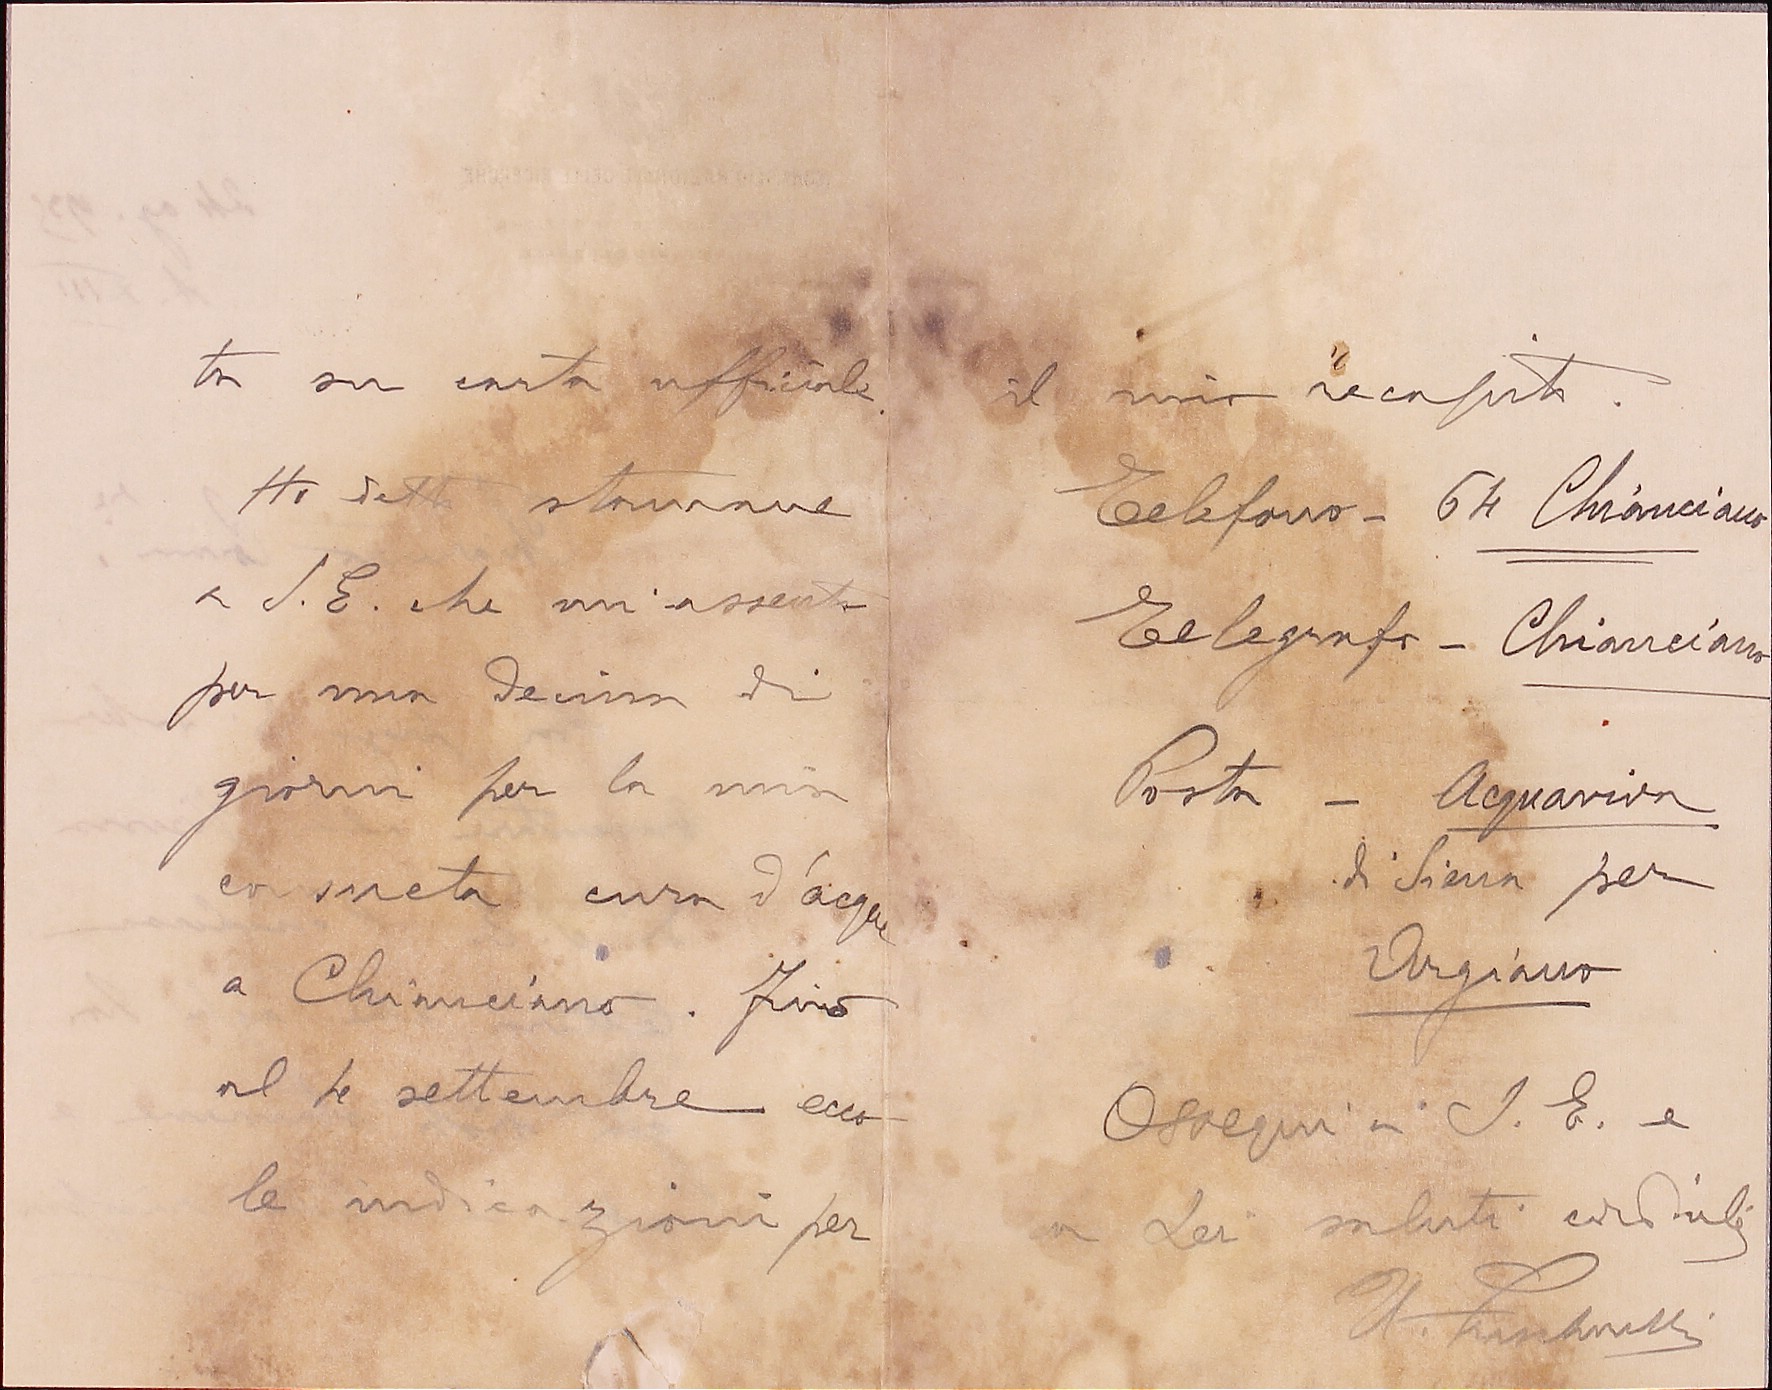 ta su carta ufficiale.
Ho detto stamane
a S. E. che mi assento
per una decina di
giorni per la mia
consueta cura d'acque
a Chianciano. Fino
al 4 settembre ecco
le indicazioni per
il mio recapito.
Telefono - 64 Chianciano
Telegrafo - Chianciano
Posta - Acquaviva
di Siena per
Argiano
Ossequi a S. E. e
a Lei saluti cordiali